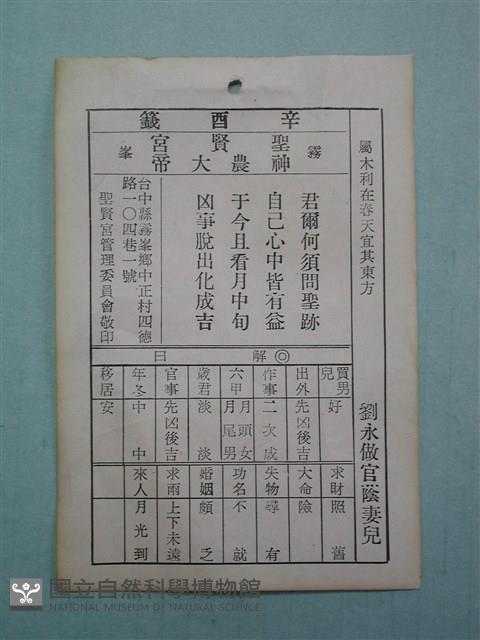 屬木利在春天宜其東方
劉永做官蔭妻兒
辛酉籤
霧峯
聖賢宮
神農大帝
君爾何須問聖跡
自己心中皆有益
于今且看月中旬
凶事脫出化成吉
台中縣霧峯鄉中正村四德
路一〇四巷一號
聖賢宮管理委員會敬印
◎解曰
買男兒 好
出外 先凶後吉
作事 二次成
六甲 月頭女月尾男
歲君 淡淡
官事 先凶後吉
年冬 中中
移居 安
求財 照舊
大命 險
失物 尋有
功名 不就
婚姻 頗乏
求雨 上下未遠
來人 月光到
國立自然科學博物館
NATIONAL MUSEUM OF NATURAL SCIENCE